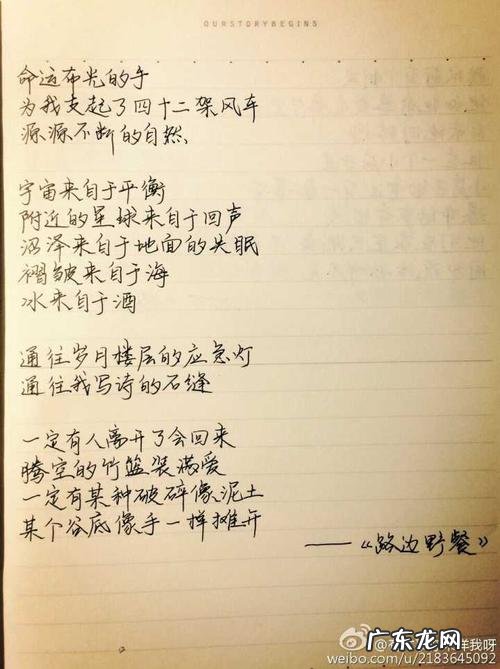 OURSTORYBEGINS
命运布光的手
为我支起了四十二架风车
源源不断的自然
宇宙来自于平衡
附近的星球来自于回声
沼泽来自于地面的失眠
褶皱来自于海
冰来自于酒
通往岁月楼层的应急灯
通往我写诗的石缝
一定有人离开了会回来
腾空的竹篮装满爱
一定有某种破碎像泥土
某个谷底像手一样摊开
——《路边野餐》
样我呀
广东龙网
weibo.com/u/2183645092